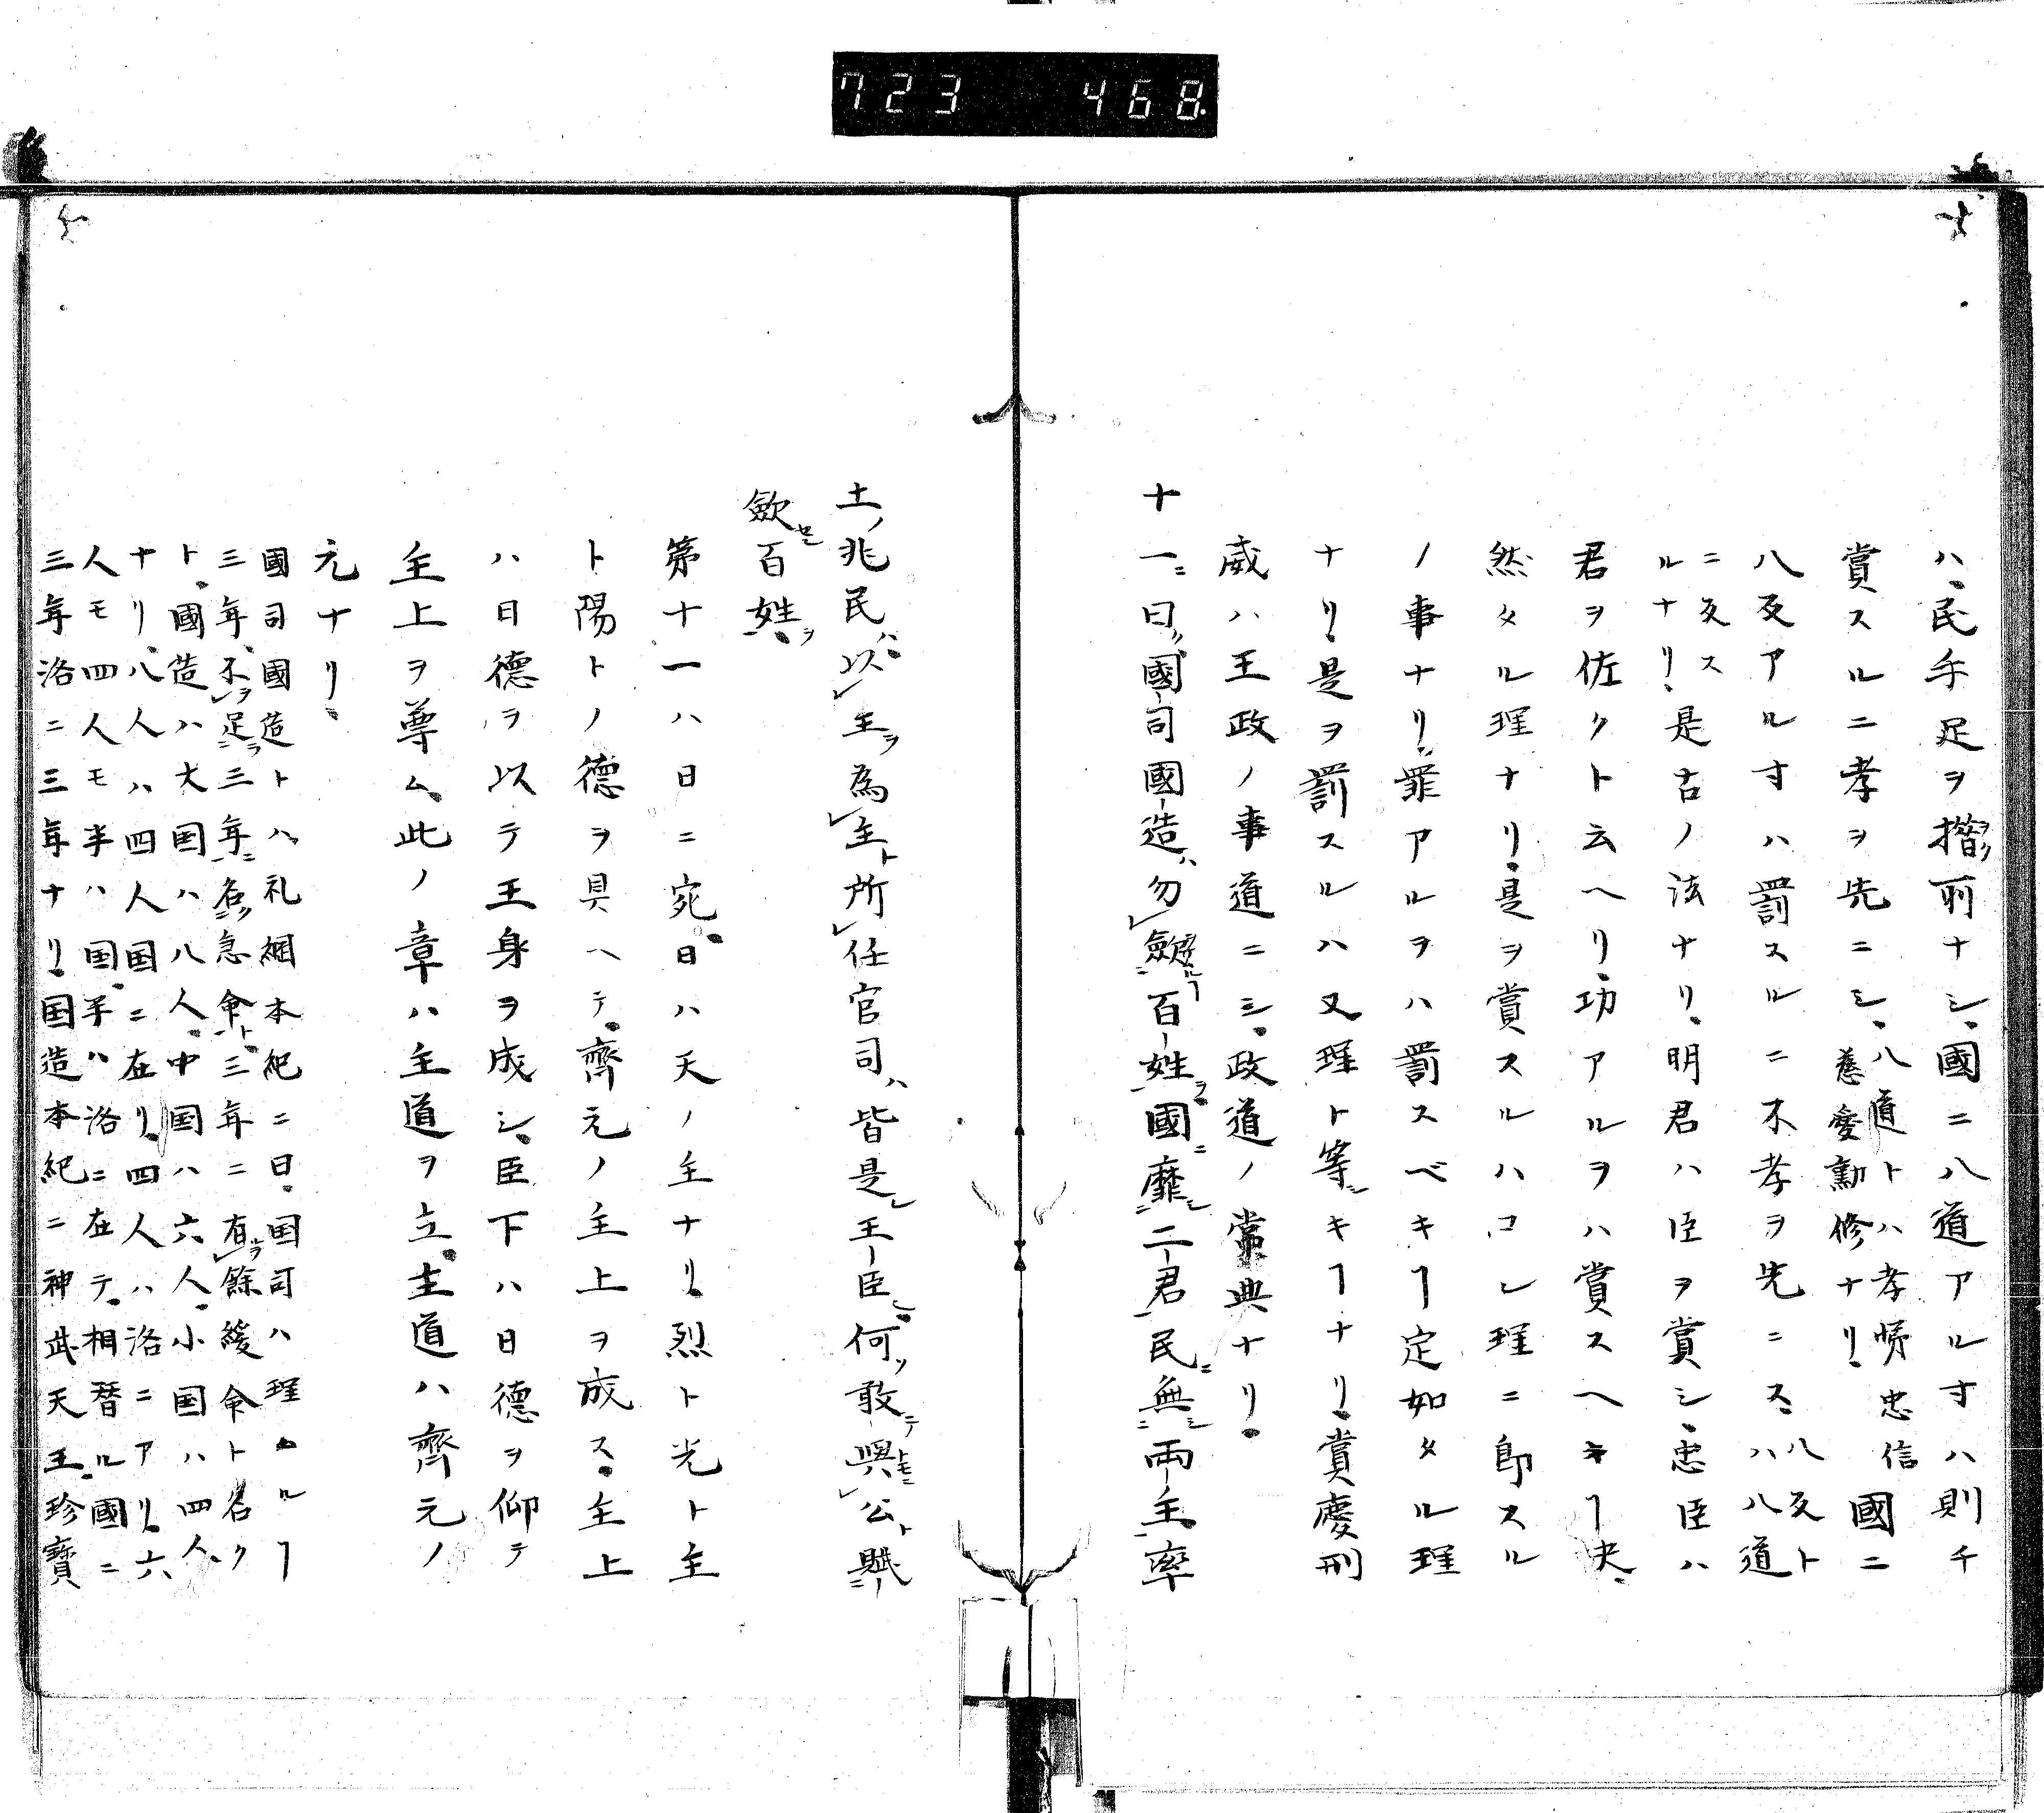 723 468
ハ、民手足ヲ措所ナシ、國ニ八道アル寸ハ則チ
賞スルニ孝ヲ先ニシ、八道トハ孝悌忠信
慈愛勤修ナリ、國ニ
八反アル寸ハ罰スルニ不孝ヲ先ニス、八反ト
ハ八道
ニ反ス
ルナリ、是古ノ法ナリ、明君ハ臣ヲ賞シ、忠臣ハ
君ヲ佐クト云ヘリ、功アルヲハ賞スヘキヿ夫
然タル理ナリ、是ヲ賞スルハコレ理ニ即スル
ノ事ナリ、罪アルヲハ罰スベキヿ定如タル理
ナリ、是ヲ罰スルハ又理ト等キヿナリ、賞慶刑
威ハ王政ノ事道ニシ、政道ノ常典ナリ、
十一ニ曰、國司國造ハ勿歛百姓ヲ國ニ靡二君民ニ無兩主率
土ノ兆民ハ以王ヲ為主ト所任官司ハ皆是王臣何敢テ與公ト賦
歛セン百姓ヲ
第十一ハ日ニ宛、日ハ天ノ主ナリ、烈ト光ト主
ト陽トノ德ヲ具ヘテ、齊元ノ主上ヲ成ス、主上
ハ日德ヲ以テ王身ヲ成シ、臣下ハ日德ヲ仰テ
主上ヲ尊ム、此ノ章ハ主道ヲ立、主道ハ齊元ノ
元ナリ、
國司國造トハ礼綱本紀ニ曰、国司ハ理ムルヿ
三年、不足ヲ三年ニ名急命ト、三年ニ有餘ヲ緩命ト名ク
ト、國造ハ大国ハ八人、中国ハ六人、小国ハ四人、
ナリ、八人ハ四人国ニ在リ、四人ハ洛ニアリ、六
人モ四人モ半ハ国、半ハ洛ニ在テ、相暦ル、國ニ
三年洛ニ三年ナリ、国造本紀ニ神武天王、珍寶